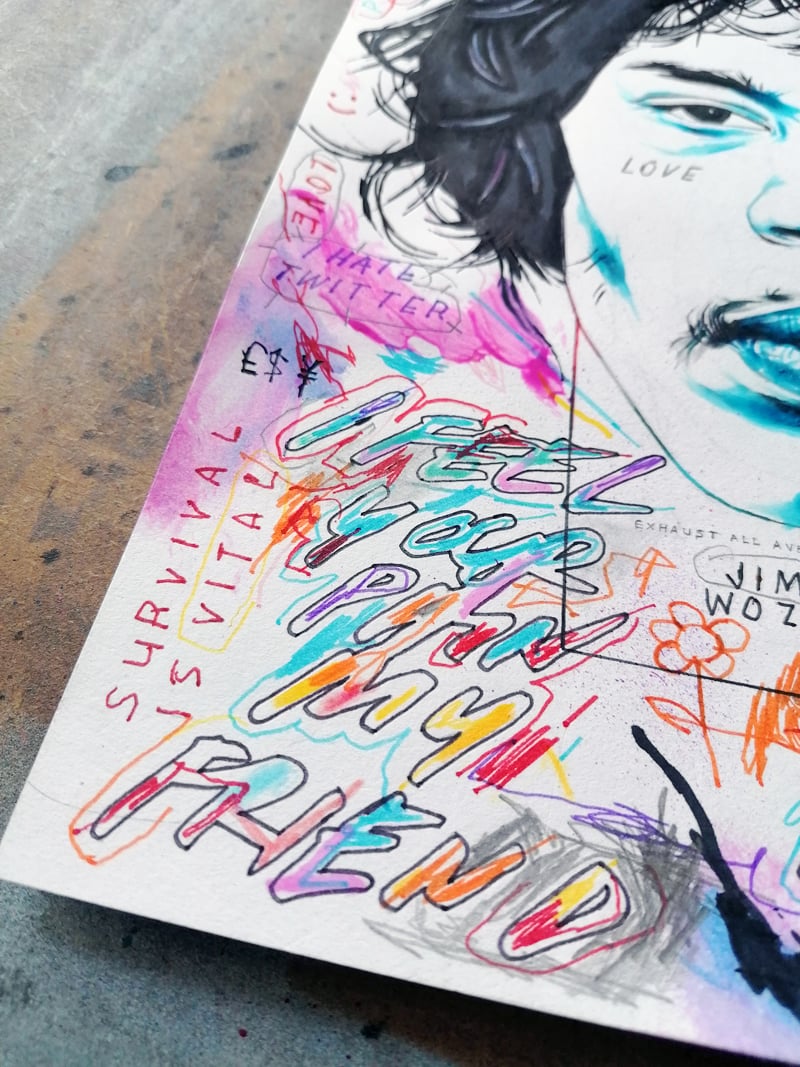 LOVE
LOVE
I HATE
TWITTER
£ $ ¥
I FEEL
YOUR
PAIN
MY
FRIEND
SURVIVAL
IS VITAL
EXHAUST ALL AVE
JIM
WOZ